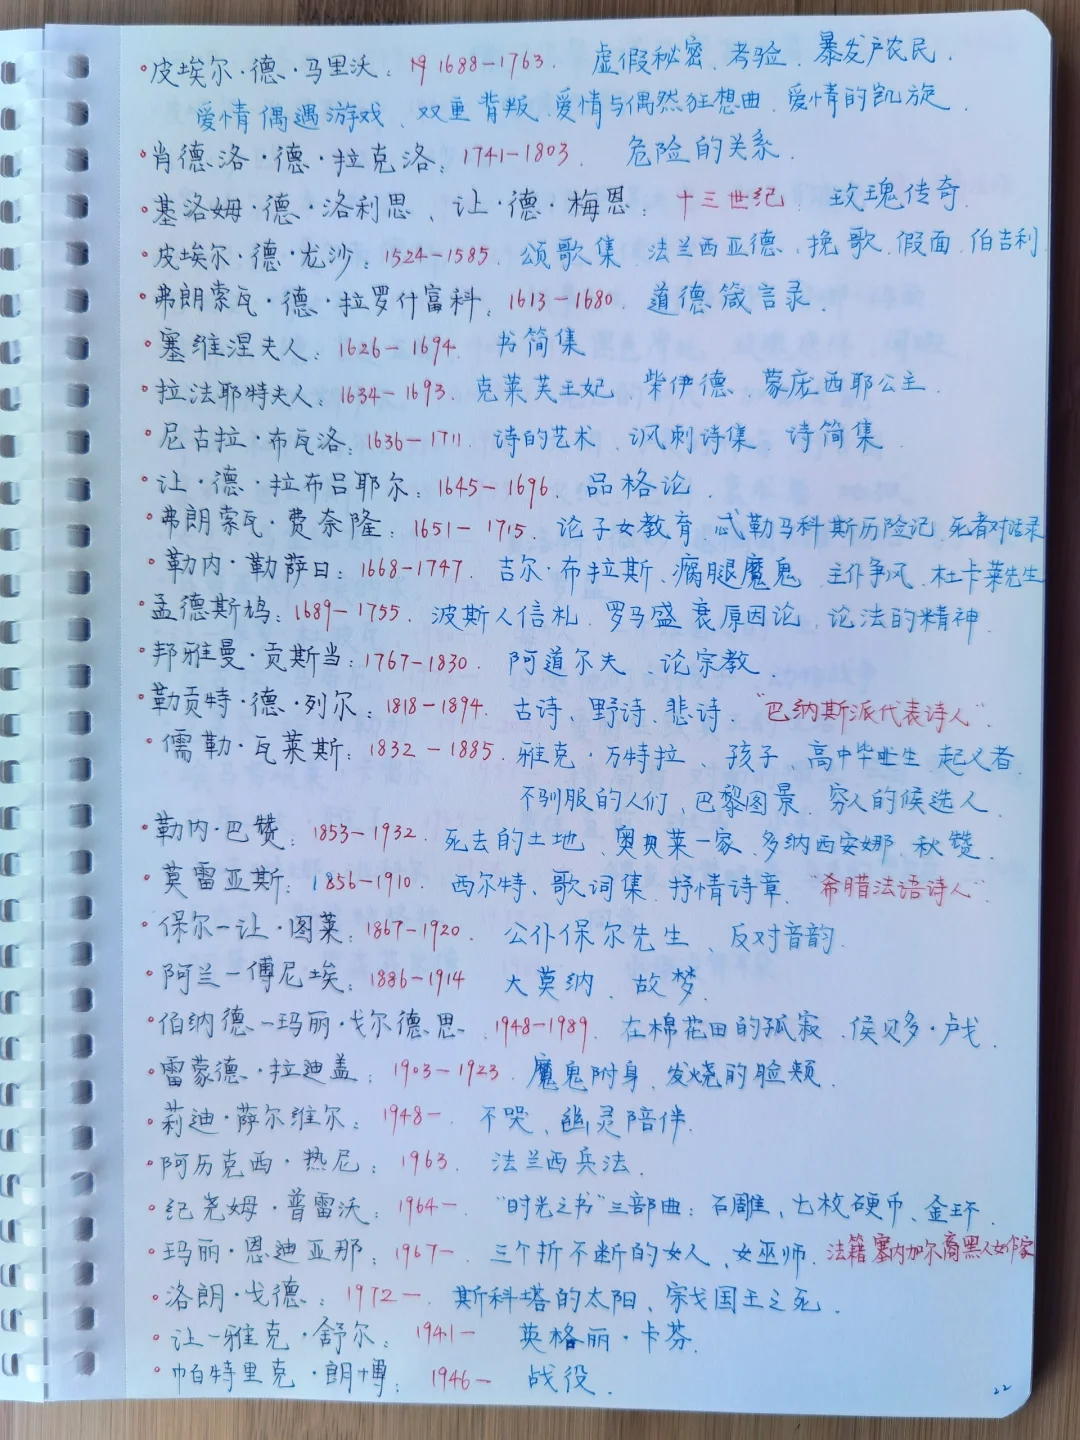 ·皮埃尔·德·马里沃：1688-1763. 虚假秘密、考验、暴发户农民、
爱情偶遇游戏、双重背叛、爱情与偶然狂想曲、爱情的凯旋、
·肖德洛·德·拉克洛：1741-1803. 危险的关系、
·基洛姆·德·洛利思、让·德·梅恩：十三世纪 玫瑰传奇、
·皮埃尔·德·尤沙：1524-1585. 颂歌集、法兰西亚德、挽歌、假面、伯吉利
·弗朗索瓦·德·拉罗什富科：1613-1680. 道德箴言录、
·塞维涅夫人：1626-1694 书简集
·拉法耶特夫人：1634-1693. 克莱芙王妃、柴伊德、蒙庞西耶公主、
·尼古拉·布瓦洛：1636-1711. 诗的艺术、讽刺诗集、诗简集、
·让·德·拉布吕耶尔：1645-1696. 品格论、
·弗朗索瓦·费奈隆：1651-1715. 论子女教育、忒勒马科斯历险记、死者对话录
·勒内·勒萨日：1668-1747. 吉尔·布拉斯、瘸腿魔鬼、主仆争风、杜卡莱先生
·孟德斯鸠：1689-1755. 波斯人信札、罗马盛衰原因论、论法的精神、
·邦雅曼·贡斯当：1767-1830. 阿道尔夫、论宗教、
·勒贡特·德·列尔：1818-1894. 古诗、野诗、悲诗、“巴纳斯派代表诗人”.
·儒勒·瓦莱斯：1832-1885. 雅克·万特拉、孩子、高中毕业生、起义者、
不驯服的人们、巴黎图景、穷人的候选人
·勒内·巴赞：1853-1932. 死去的土地、奥贝莱一家、多纳西安娜、秋赞、
·莫雷亚斯：1856-1910. 西尔特、歌词集、抒情诗章、“希腊法语诗人”
·保尔-让·图莱：1867-1920. 公仆保尔先生、反对音韵、
·阿兰-傅尼埃：1886-1914 大莫纳、故梦、
·伯纳德-玛丽·戈尔德思 1948-1989. 在棉花田的孤寂、侯贝多·卢戈、
·雷蒙德·拉迪盖：1903-1923. 魔鬼附身、发烧的脸颊、
·莉迪·萨尔维尔：1948- 不哭、幽灵陪伴、
·阿历克西·热尼：1963. 法兰西兵法、
·纪尧姆·普雷沃：1964- “时光之书”三部曲：石雕、七枚硬币、金环、
·玛丽·恩迪亚耶：1967-. 三个折不断的女人、女巫师、法籍塞内加尔裔黑人女作家
·洛朗·戈德：1972-. 斯科塔的太阳、宗戈国王之死、
·让-雅克·舒尔：1941- 英格丽·卡芬、
·帕特里克·朗博：1946- 战役、
22